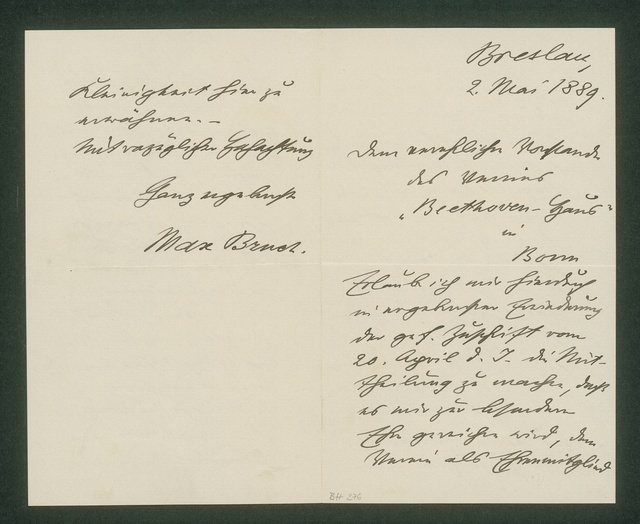 Breslau,
2. Mai 1889.
Dem verehrlichen Vorstande
des Vereins
„Beethoven-Haus“
in
Bonn
Erlaube ich mir hierdurch
in ergebenster Erwiderung
der gef. Zuschrift vom
20. April d. J. die Mit-
theilung zu machen, daß
es mir zur besonderen
Ehre gereichen wird, dem
Verein als Ehrenmitglied
Kleinigkeit hier zu
erwähnen. –
Mit vorzüglicher Hochachtung
Ganz ergebenst
Max Bruch.
BH 276